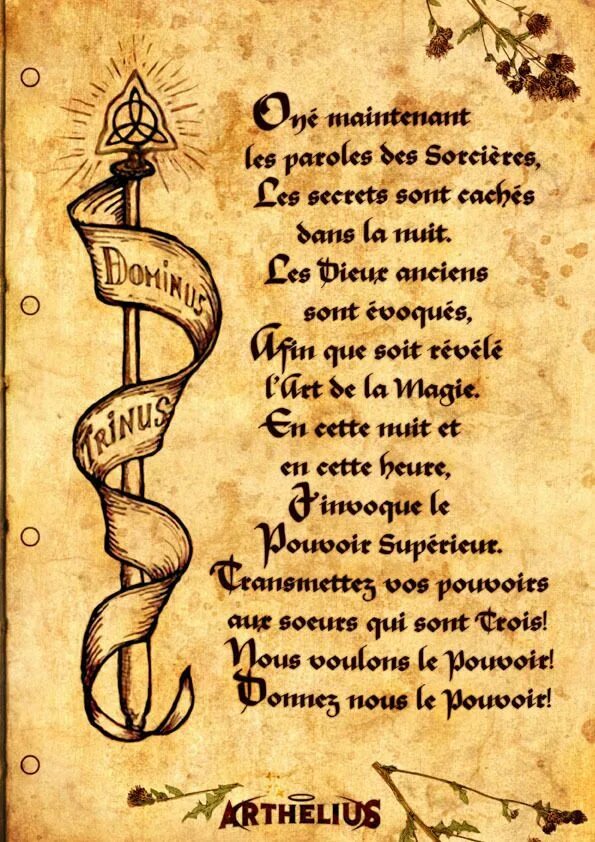 Dominus
Trinus
Oyé maintenant
les paroles des Sorcières,
Les secrets sont cachés
dans la nuit.
Les Dieux anciens
sont évoqués,
Afin que soit révélé
l'Art de la Magie.
En cette nuit et
en cette heure,
J'invoque le
Pouvoir Supérieur.
Transmettez vos pouvoirs
aux soeurs qui sont Trois!
Nous voulons le Pouvoir!
Donnez nous le Pouvoir!
ARTHELIUS